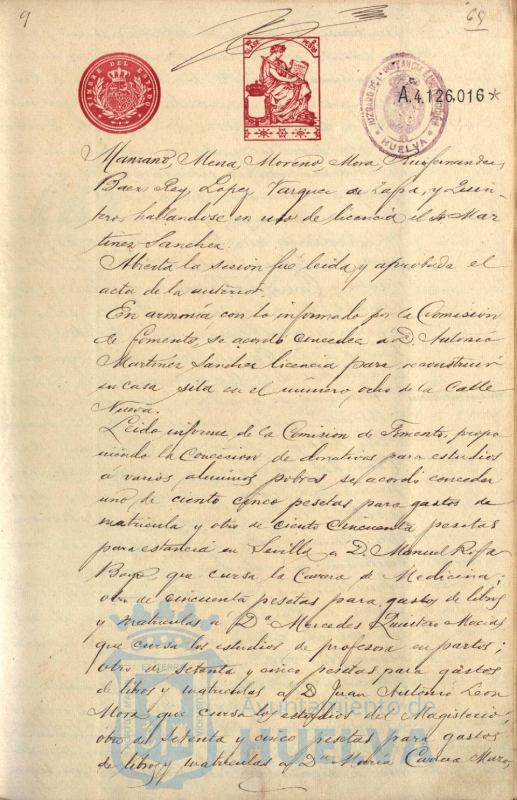 9
65
TIMBRE DEL ESTADO
11ª CLASE
PESETA
HUELVA
A.4.126.016*
Manzano, Mena, Moreno, Mora, Ruifernandez,
Baez Rey, Lopez, Vazquez de Zafra, y Quin-
tero, hallandose en uso de licencia el Sr Mar
tinez Sanchez.
Abierta la sesion fué leida y aprobada el
acta de la anterior.
En armonía con lo informado por la Comision
de fomento, se acordó conceder á D. Antonio
Martinez Sanchez licencia para reconstruir
su casa sita en el número ocho de la Calle
Nueva.
Leido informe de la Comision de Fomento, propo
niendo la Concesion de donativos para estudios
á varios alumnos pobres se acordó conceder
uno de ciento cinco pesetas para gastos de
matricula y otro de ciento cincuenta pesetas
para estancia en Sevilla a D. Manuel Rofa
que cursa la Carrera de Medicina;
otro de cincuenta pesetas para gastos de libros
y matriculas á Dª Mercedes Quintero Macias
que cursa los estudios de profesora en partos;
otro de setenta y cinco pesetas para gastos
de libros y matriculas á D Juan Antonio Leon
Mora que cursa los estudios del Magisterio;
otro de setenta y cinco pesetas para gastos
de libros y matriculas á Dª María Cuenca Muro,
Ayuntamiento de
HUELVA